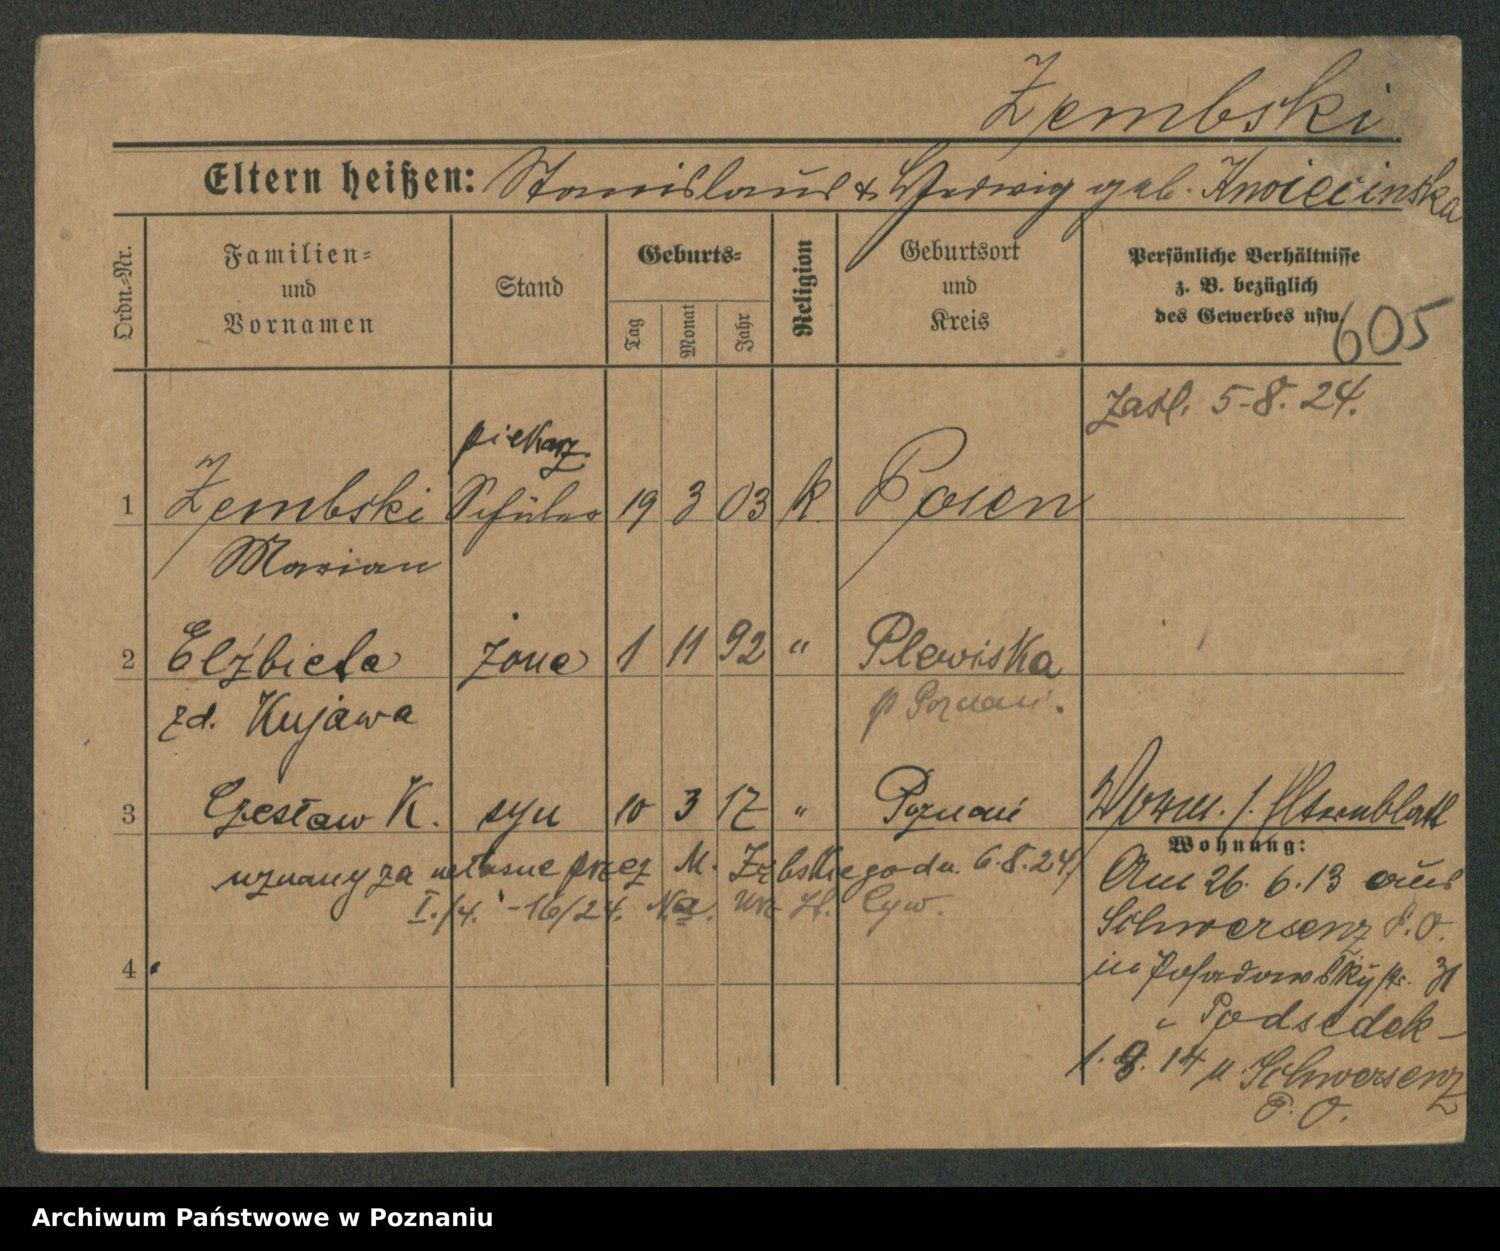 Zembski
Eltern heißen: Stanislaus & Hedwig geb. Kwiecinska
Ordn.-Nr.
Familien-
und
Vornamen
Stand
Geburts-
Tag
Monat
Jahr
Religion
Geburtsort
und
Kreis
Persönliche Verhältnisse
z. B. bezüglich
des Gewerbes usw.
605
zaśl. 5.8.24.
piekarz
1 Zembski Schüler 19 3 03 k. Posen
Marian
2 Elżbieta żona 1 11 92 " Plewiska
zd. Kujawa p Poznań.
3 Czesław K. syn 10 3 17 " Poznań Vorm. s. Elternblatt
uznany za własne przez M. Zębskiego dn. 6.8.24
I./4. -16/24. Urz St. Cyw.
Wohnung:
Am 26. 6. 13 aus
Schwersenz P. O.
4 in Posadowskystr. 31
Podsedek
1. 9. 14 n. Schwersenz
P. O.
Archiwum Państwowe w Poznaniu